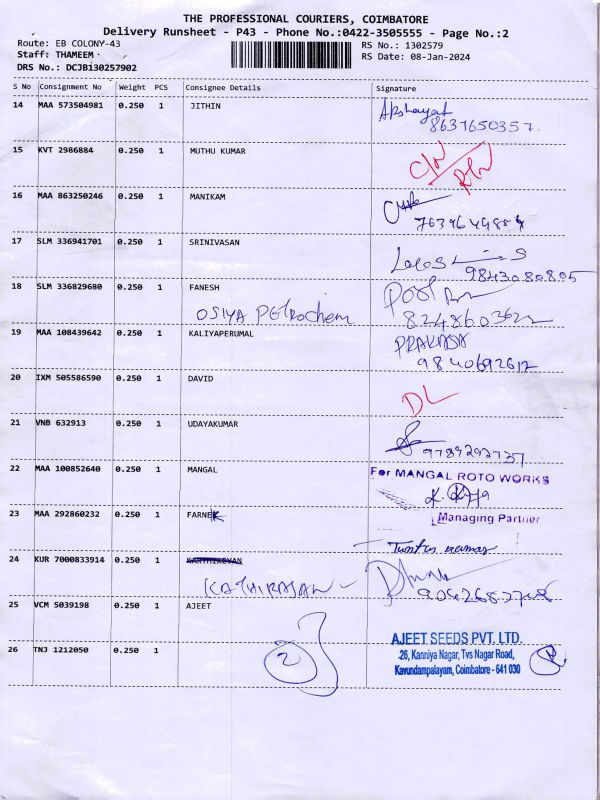 THE PROFESSIONAL COURIERS, COIMBATORE
Delivery Runsheet - P43 - Phone No.:0422-3505555 - Page No.:2
Route: EB COLONY-43
RS No.: 1302579
Staff: THAMEEM
RS Date: 08-Jan-2024
DRS No.: DCJBi30257902
S No Consignment No Weight PCS Consignee Details Signature
14 MAA 573504981 0.250 1 JITHIN Akshayat
8637650357.
15 KVT 2986884 0.250 1 MUTHU KUMAR
16 MAA 863250246 0.250 1 MANIKAM
17 SLM 336941701 0.250 1 SRINIVASAN
9843080805
18 SLM 336829680 0.250 1 FANESH
OSIYA PETROchem
19 MAA 108439642 0.250 1 KALIYAPERUMAL PRAKASH
9840692612
20 IXM 505586590 0.250 1 DAVID DL
21 VNB 632913 0.250 1 UDAYAKUMAR
9789292737
22 MAA 100852640 0.250 1 MANGAL For MANGAL ROTO WORKS
23 MAA 292860232 0.250 1 FARNEK Managing Partner
24 KUR 7000833914 0.250 1 KARTHIKEYAN
KATHIRAJAN
25 VCM 5039198 0.250 1 AJEET
AJEET SEEDS PVT. LTD.
26 TNJ 1212050 0.250 1 2 -26, Kanniya Nagar, Tvs Nagar Road,
Kavundampalayam, Coimbatore - 641 030